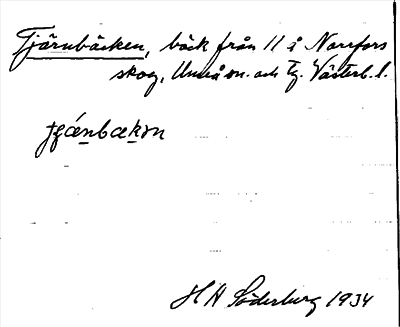 Tjärnbäcken, bäck från 11 å Norrfors
skog, Umeå sn. och tg. Västerb. l.
H H Söderburg 1934